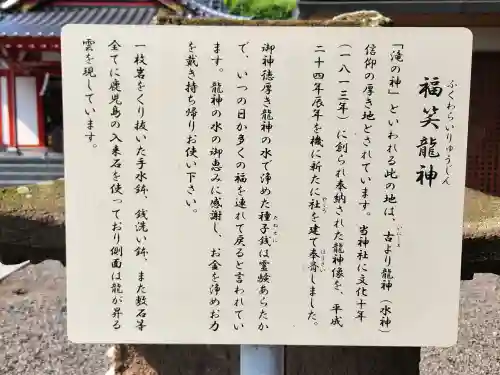 ふくわらいりゅうじん
福笑龍神
「滝の神」といわれる此の地は、古より龍神（水神）
いにしえ
信仰の厚き地とされています。当神社に文化十年
（一八一三年）に創られ奉納された龍神像を、平成
二十四年辰年を機に新たに社を建て奉斎しました。
やしろ
ほうさい
御神徳厚き龍神の水で浄めた種子銭は霊験あらたか
たねせに
で、いつの日か多くの福を連れて戻ると言われてい
ます。龍神の水の御恵みに感謝し、お金を浄めお力
を戴き持ち帰りお使い下さい。
一枚岩をくり抜いた手水鉢、銭洗い鉢、また敷石等
全てに鹿児島の入来石を使っており側面は龍が昇る
雲を現しています。